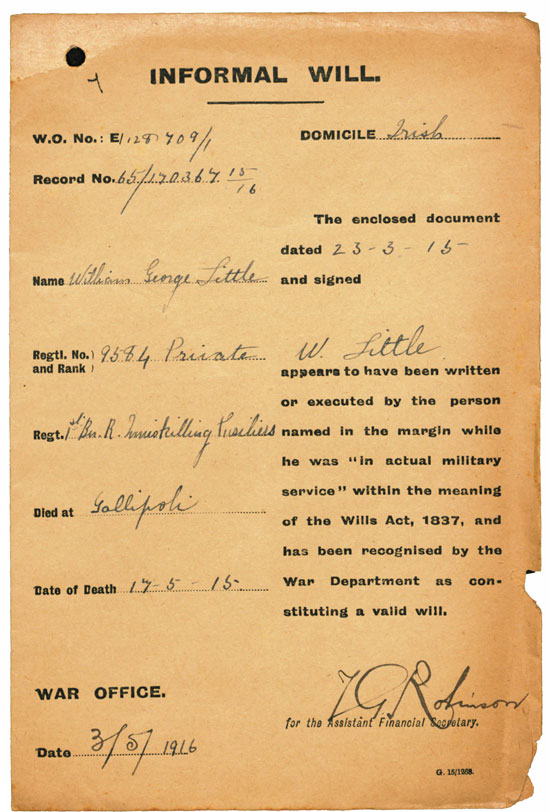 INFORMAL WILL.
W.O. No.: E/128709/1
DOMICILE Irish
Record No. 65/170367 15/16
The enclosed document
dated 23-3-15
Name William George Little
and signed
Regtl. No. and Rank 9584 Private
W. Little
appears to have been written
or executed by the person
Regt. 1st Bn. R. Inniskilling Fusiliers
named in the margin while
he was "in actual military
service" within the meaning
Died at Gallipoli
of the Wills Act, 1837, and
has been recognised by the
Date of Death 17-5-15
War Department as con-
stituting a valid will.
WAR OFFICE.
Robinson
for the Assistant Financial Secretary.
Date 3/5/1916
G. 15/1268.